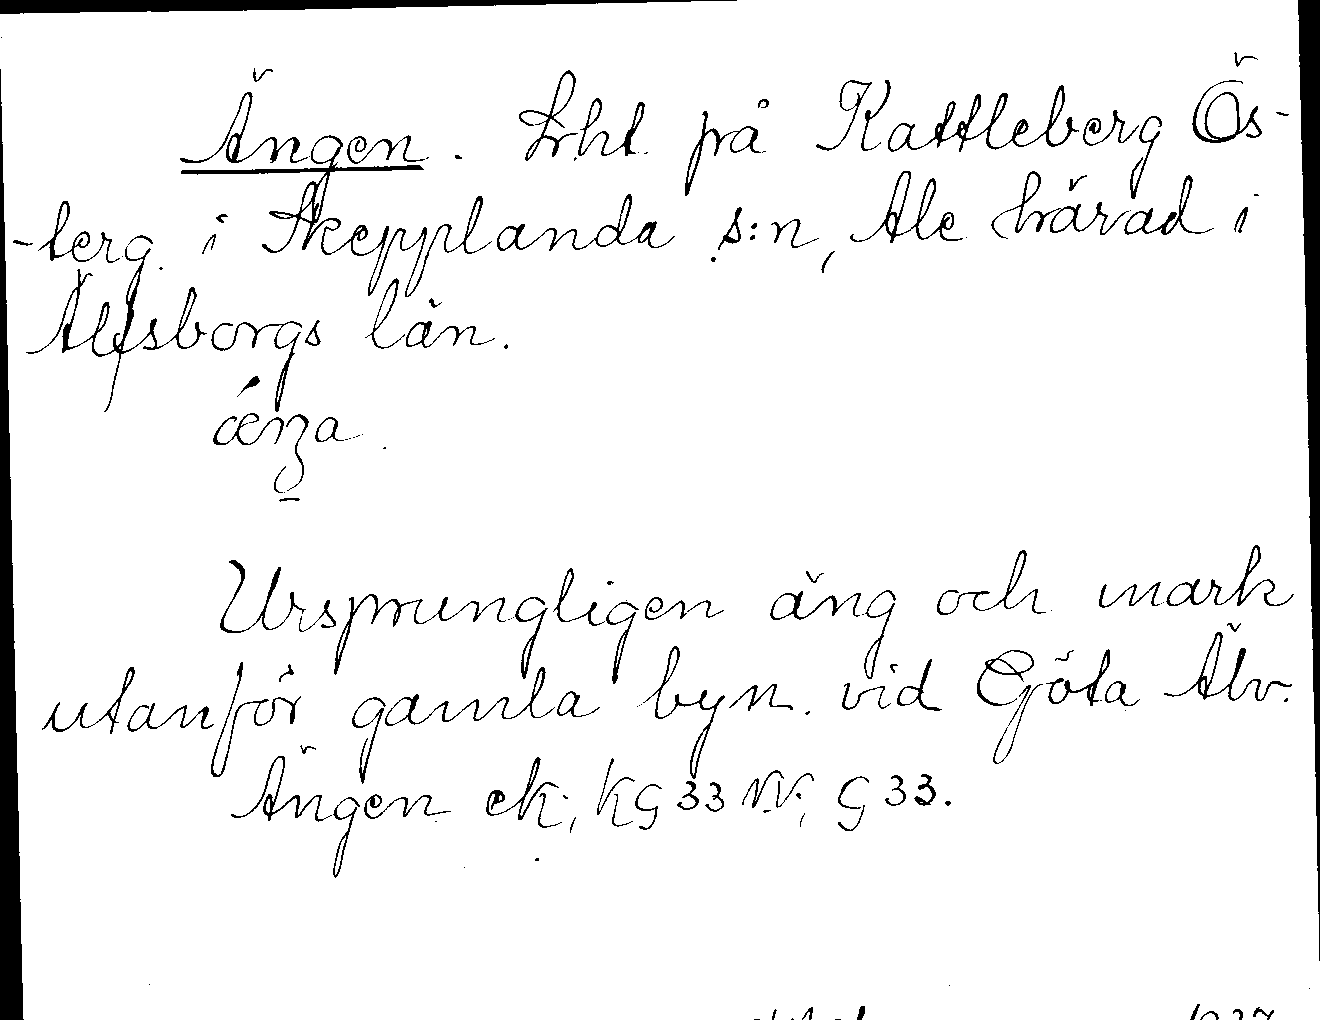 Ängen. Lht på Kattleberg Ös-
-terg. i Skepplanda s:n, Ale härad i
Älfsborgs län.
Ursprungligen äng och mark
utanför gamla byn. vid Göta Älv.
Ängen ek; KG 33 NV; G 33.